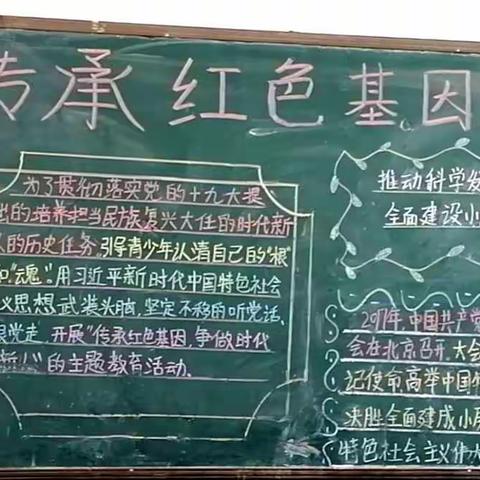 传承红色基因
为了贯彻落实党的十九大提
出的培养担当民族复兴大任的时代新
人的历史任务,引导青少年认清自己的"根"
和"魂",用习近平新时代中国特色社会
主义思想武装头脑,坚定不移的听党话、
跟党走,开展"传承红色基因,争做时代
新人"的主题教育活动。
推动科学发
全面建设小
2017年,中国共产党
会在北京召开,大会
记使命,高举中国特
决胜全面建成小康
特色社会主义伟大